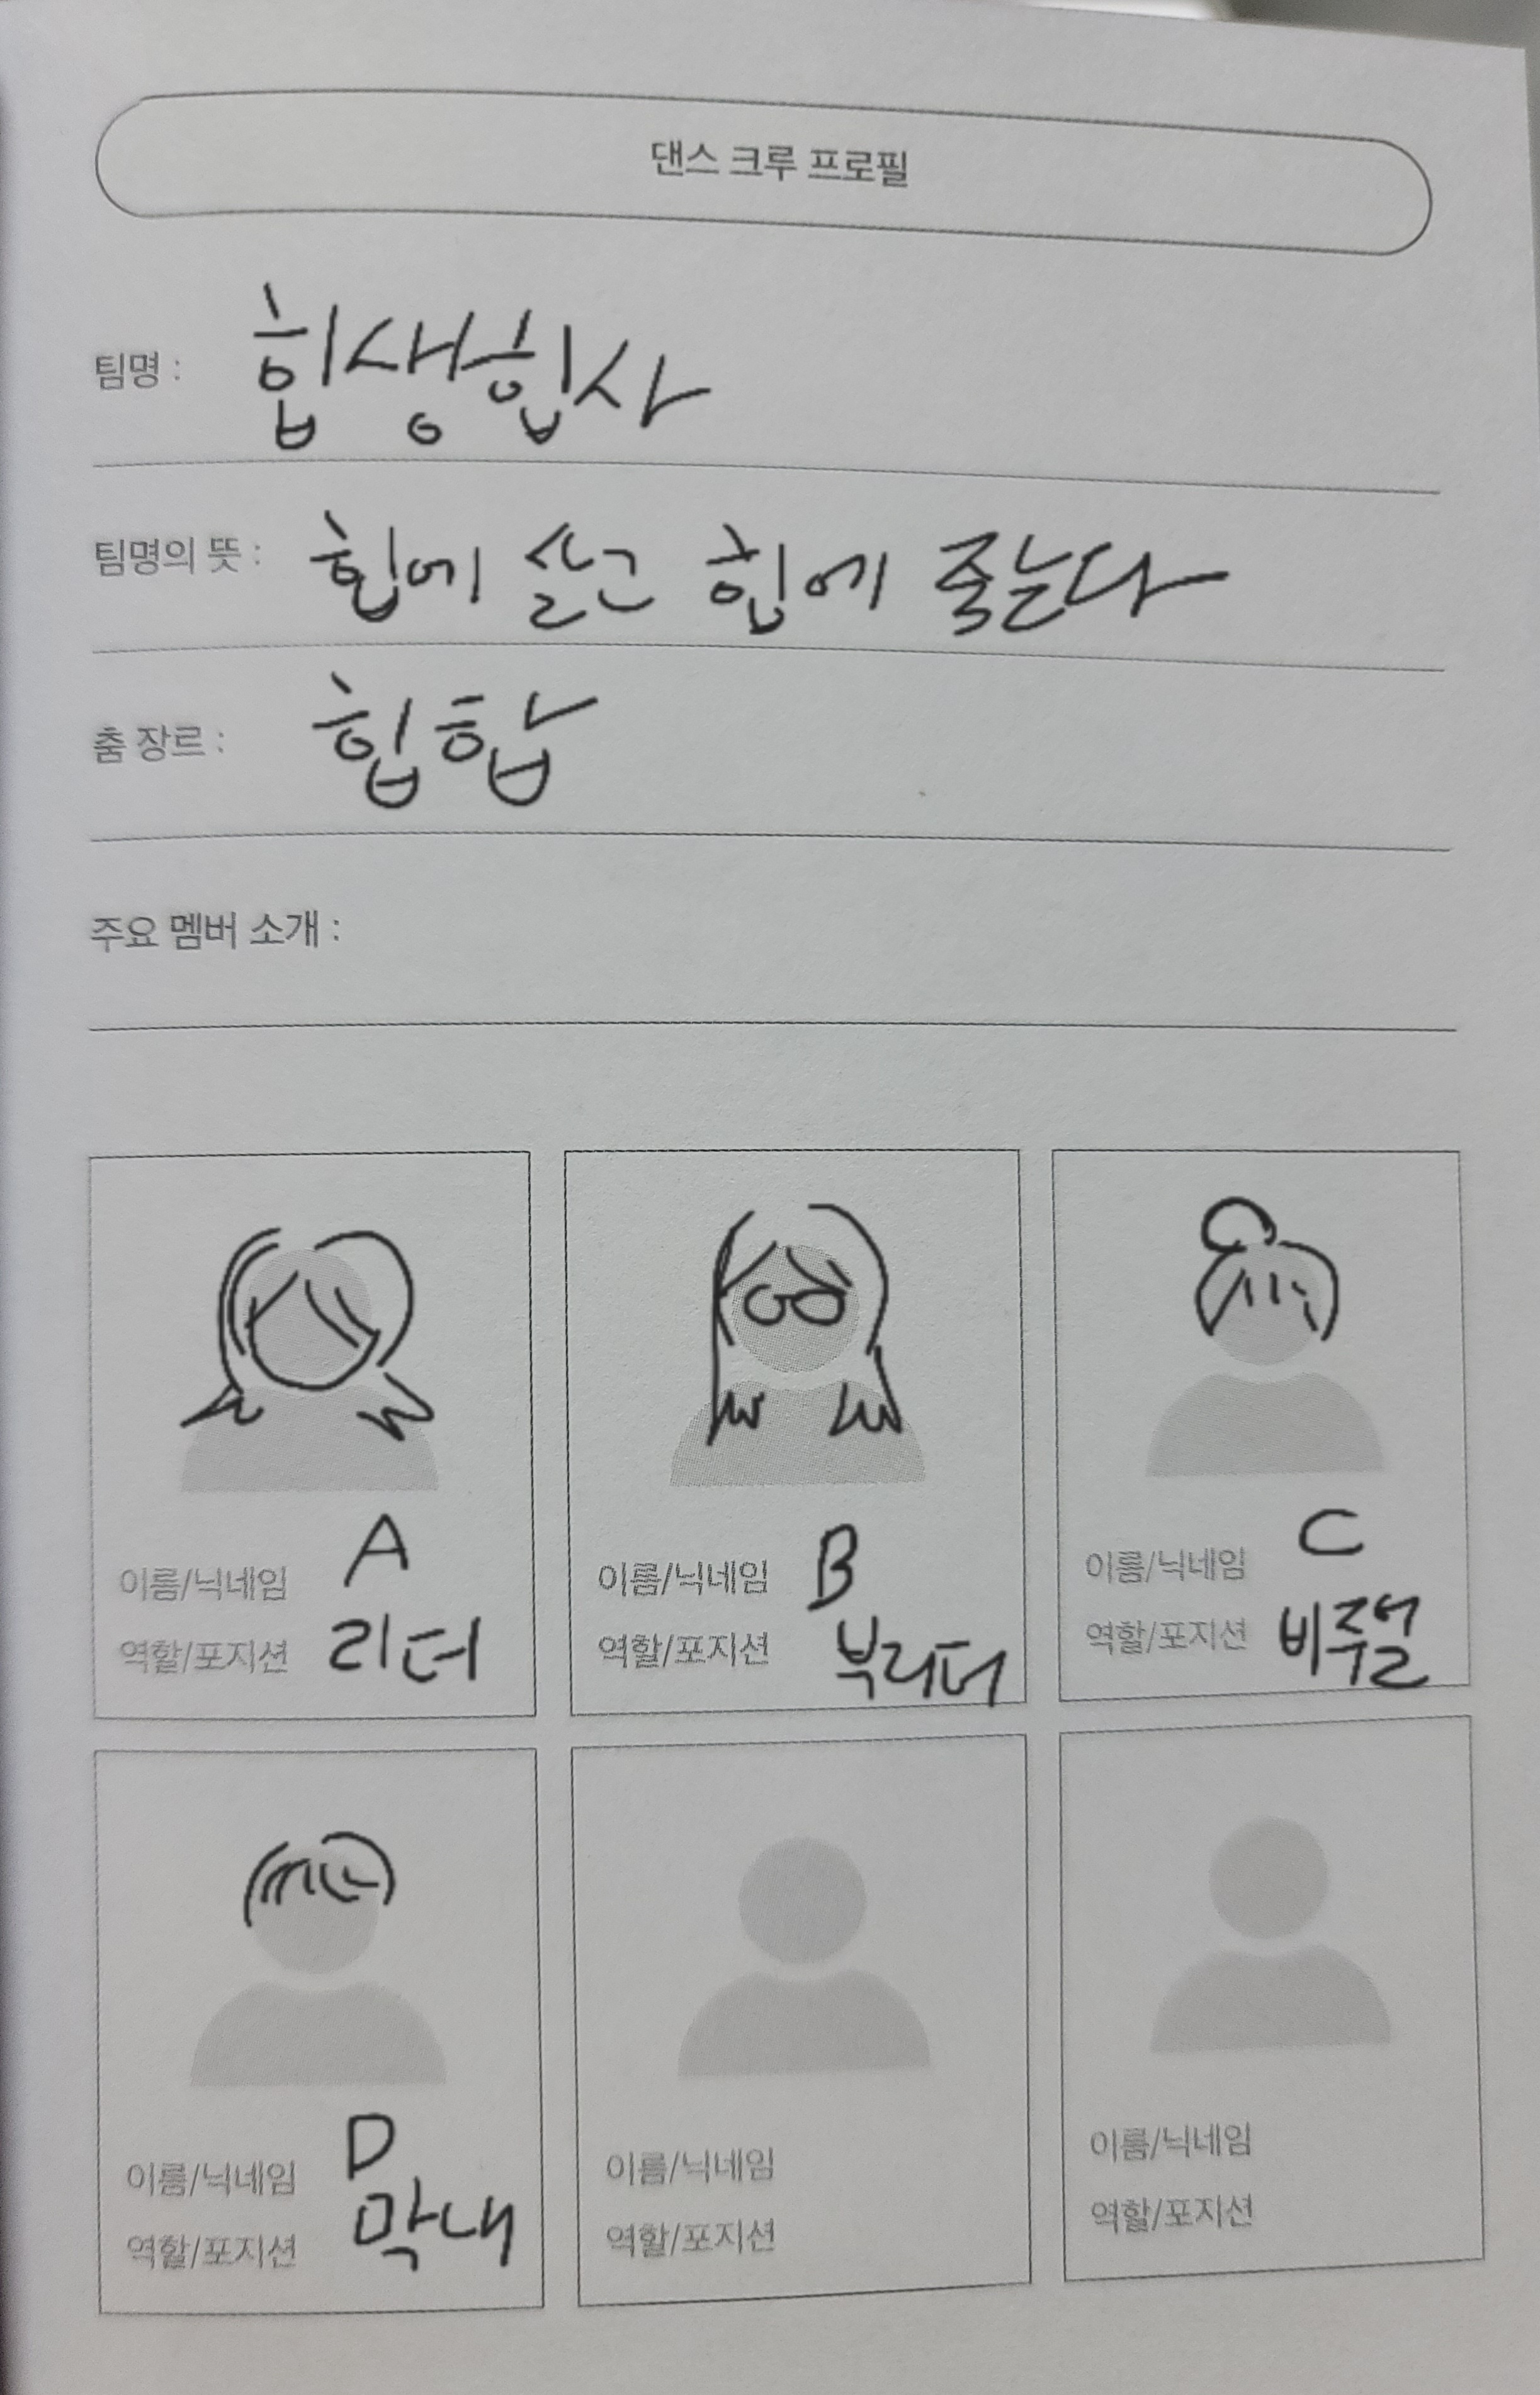 댄스 크루 프로필
팀명 : 힙생힙사
팀명의 뜻 : 힙에 살고 힙에 죽는다
춤 장르 : 힙합
주요 멤버 소개 :
이름/닉네임 A
역할/포지션 리더
이름/닉네임 B
역할/포지션 부리더
이름/닉네임 C
역할/포지션 비주얼
이름/닉네임 D
역할/포지션 막내
이름/닉네임
역할/포지션
이름/닉네임
역할/포지션